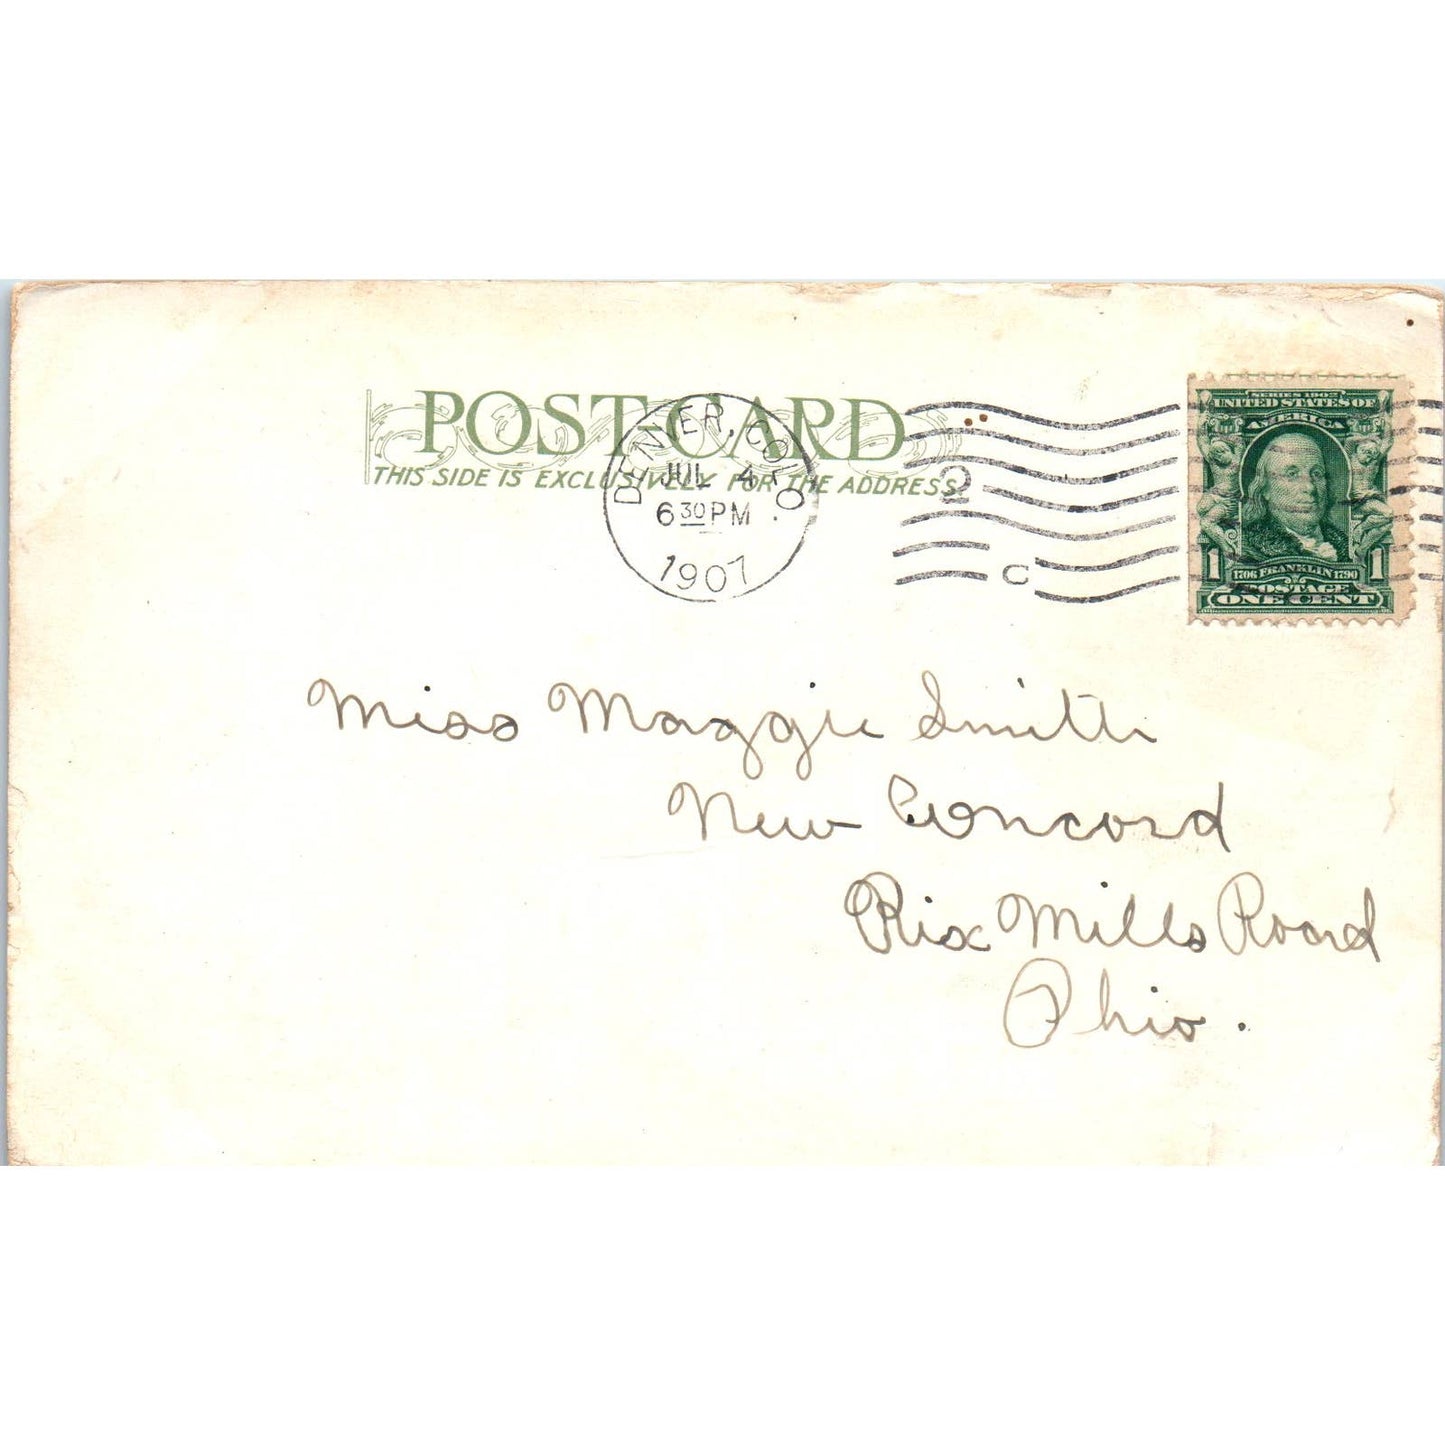 POST CARD
THIS SIDE IS EXCLUSIVELY FOR THE ADDRESS
DENVER, COLO.
JUL 4
6 30 PM
1907
2
C
SERIES 1902
UNITED STATES OF
AMERICA
1 1
1706 FRANKLIN 1790
POSTAGE
ONE CENT
Miss Maggie Smith
New Concord
Rix Mills Roard
Ohio.